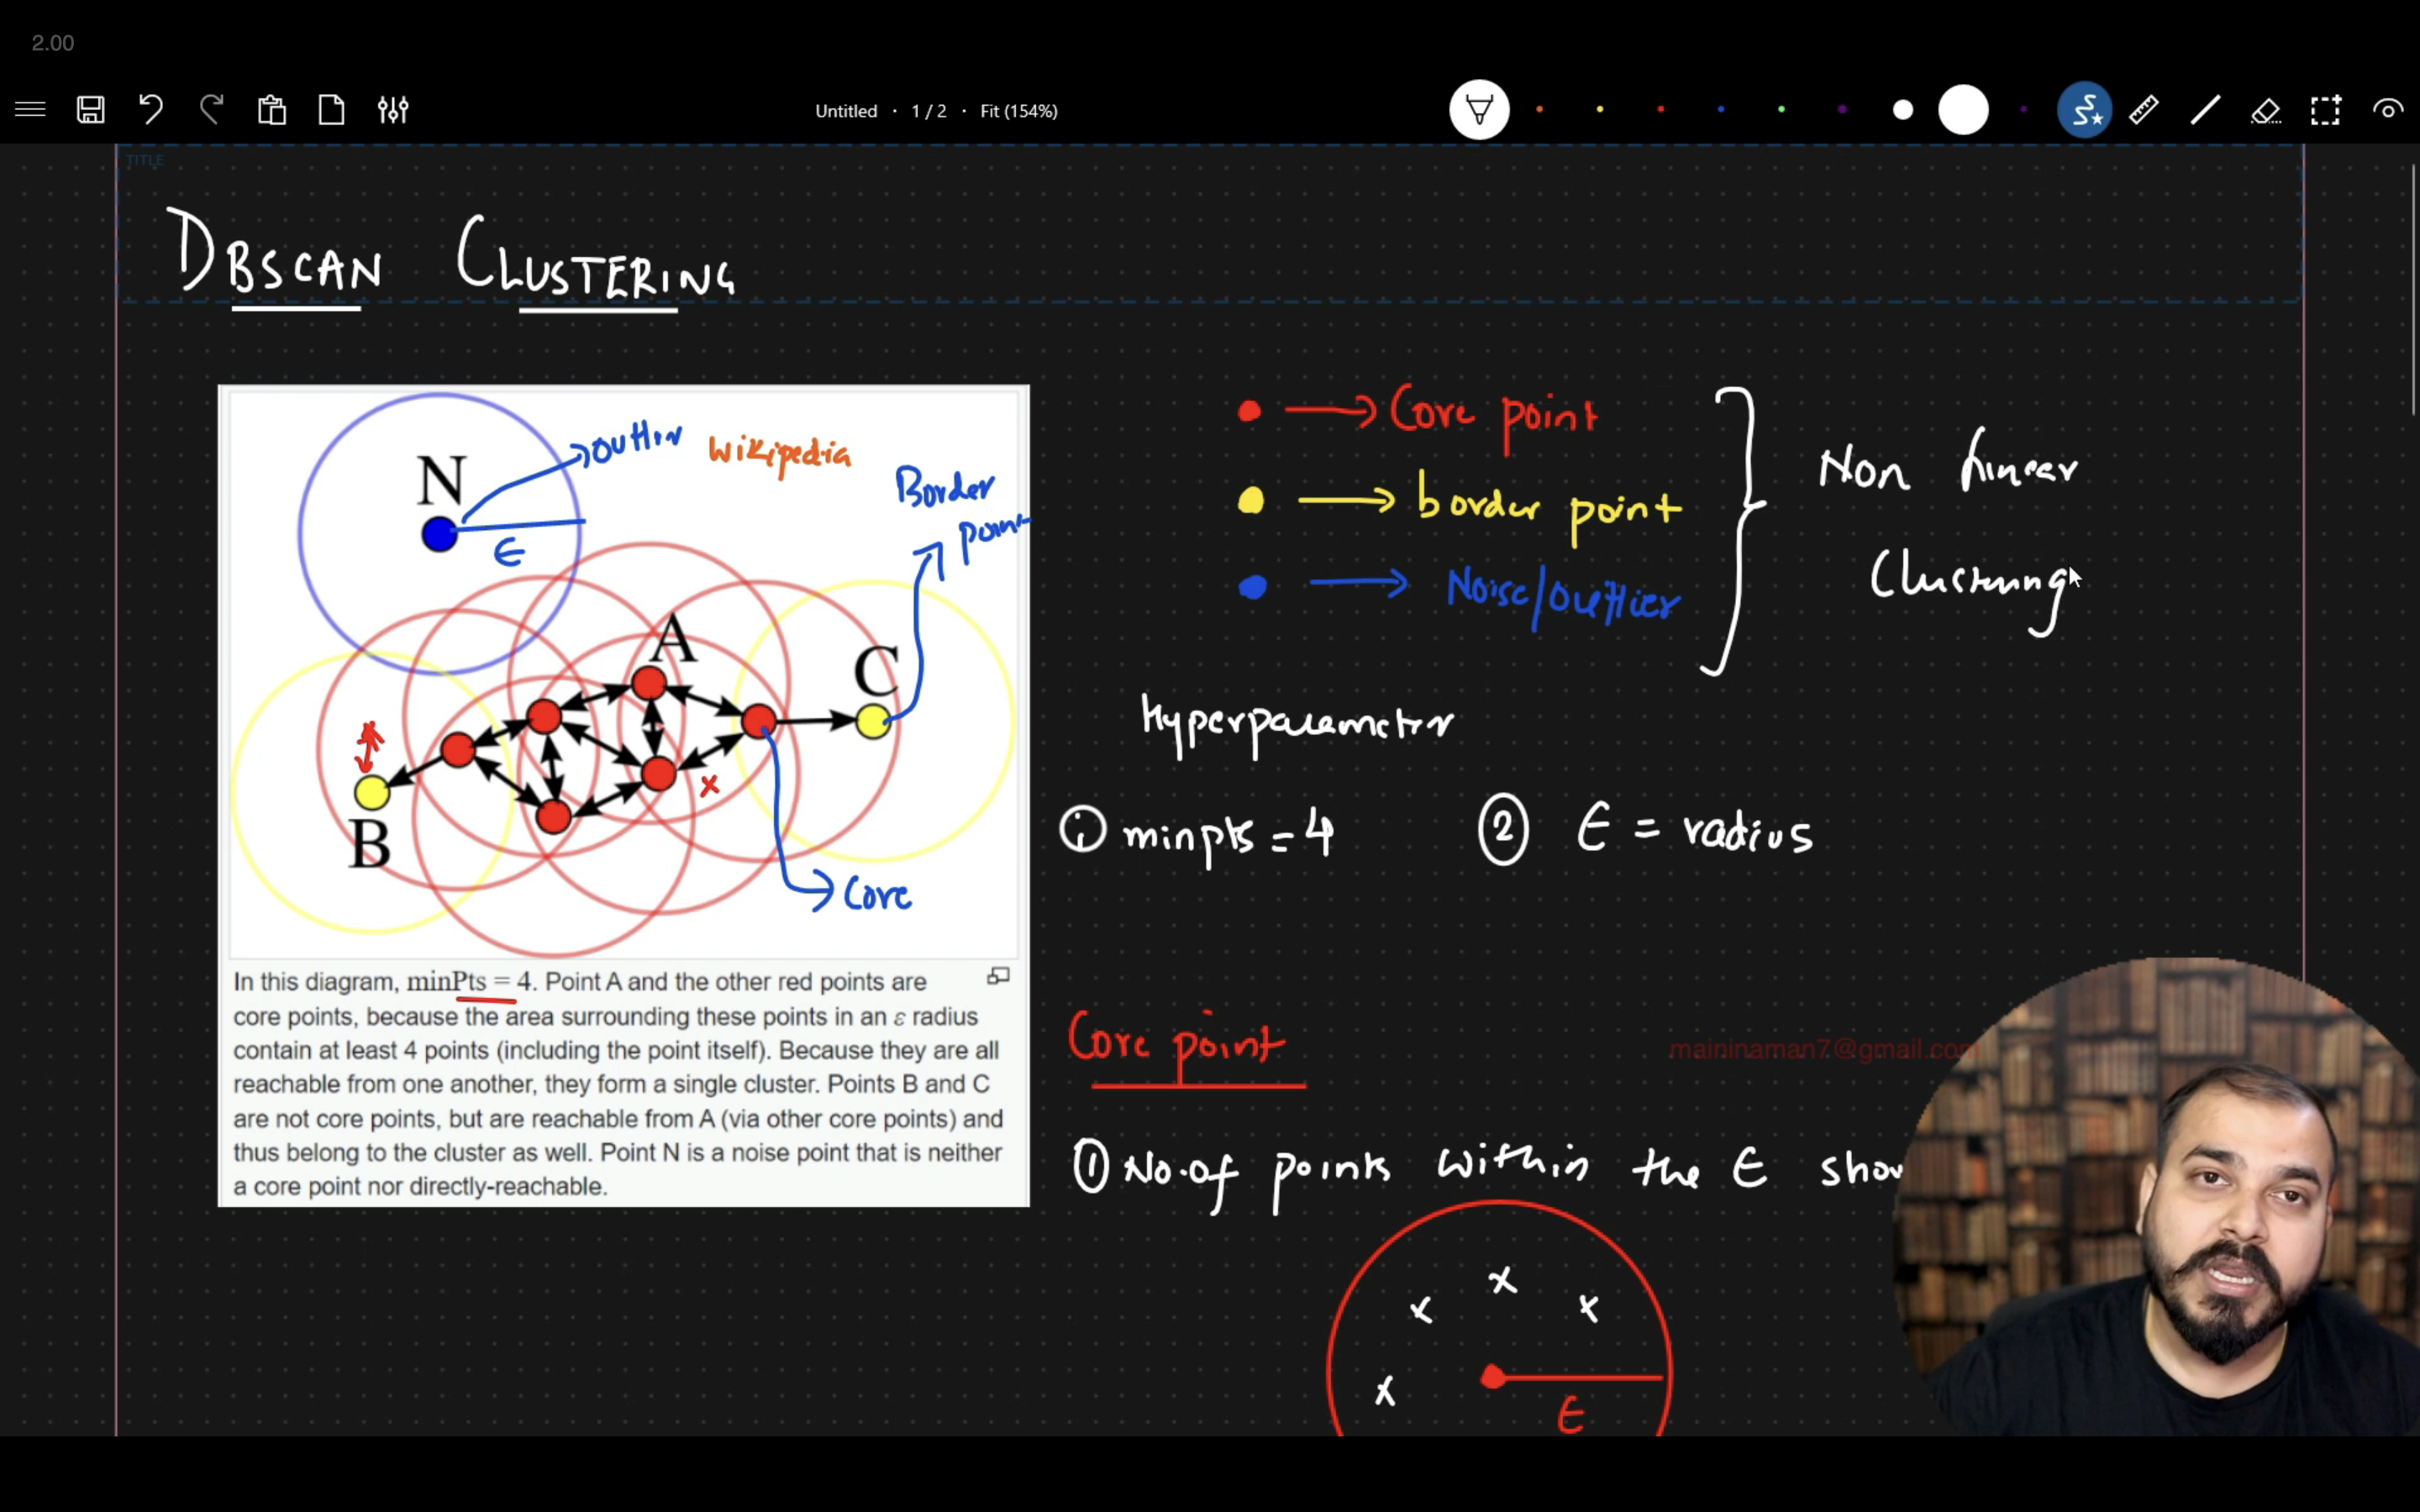 2.00
Untitled · 1 / 2 · Fit (154%)
TITLE
DBSCAN CLUSTERING
N
outlir
Wikipedia
Border
point
ϵ
A
C
B
x
Core
In this diagram, minPts = 4. Point A and the other red points are
core points, because the area surrounding these points in an ε radius
contain at least 4 points (including the point itself). Because they are all
reachable from one another, they form a single cluster. Points B and C
are not core points, but are reachable from A (via other core points) and
thus belong to the cluster as well. Point N is a noise point that is neither
a core point nor directly-reachable.
→ Core point
→ border point
→ Noise/outlier
Non linear
Clustering
Hyperparameter
① minpts = 4 ② ϵ = radius
Core point
maininaman7@gmail.com
① No. of points within the ϵ shou
x x x
x
ϵ